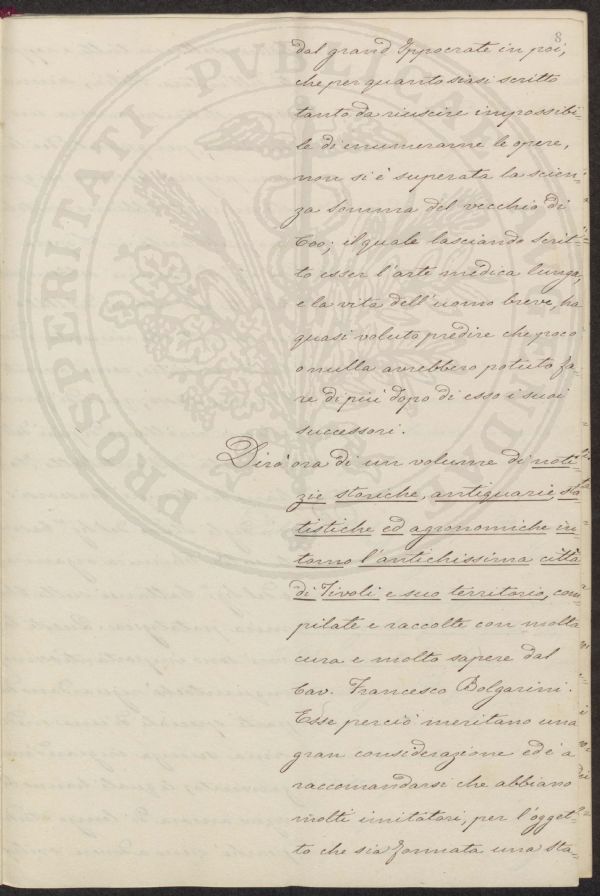 8
dal grand'Ippocrate in poi,
che per quanto siasi scritto
tanto da riuscire impossibi-
le di enumerarne le opere,
non si è superata la scien-
za somma del vecchio di
Coo; il quale lasciando scrit-
to esser l'arte medica lunga,
e la vita dell'uomo breve, ha
quasi voluto predire che poco
o nulla avrebbero potuto fa-
re di più dopo di esso i suoi
successori.
Dirò ora di un volume di noti-
zie storiche, antiquarie, sta-
tistiche ed agronomiche in-
torno l'antichissima città
di Tivoli e suo territorio, com-
pilate e raccolte con molta
cura e molto sapere dal
Cav. Francesco Bolgarini.
Esse perciò meritano una
gran considerazione ed è a
raccomandarsi che abbiano
molti imitatori, per l'ogget-
to che sia formata una sta-
PROSPERITATI PVBLICAE